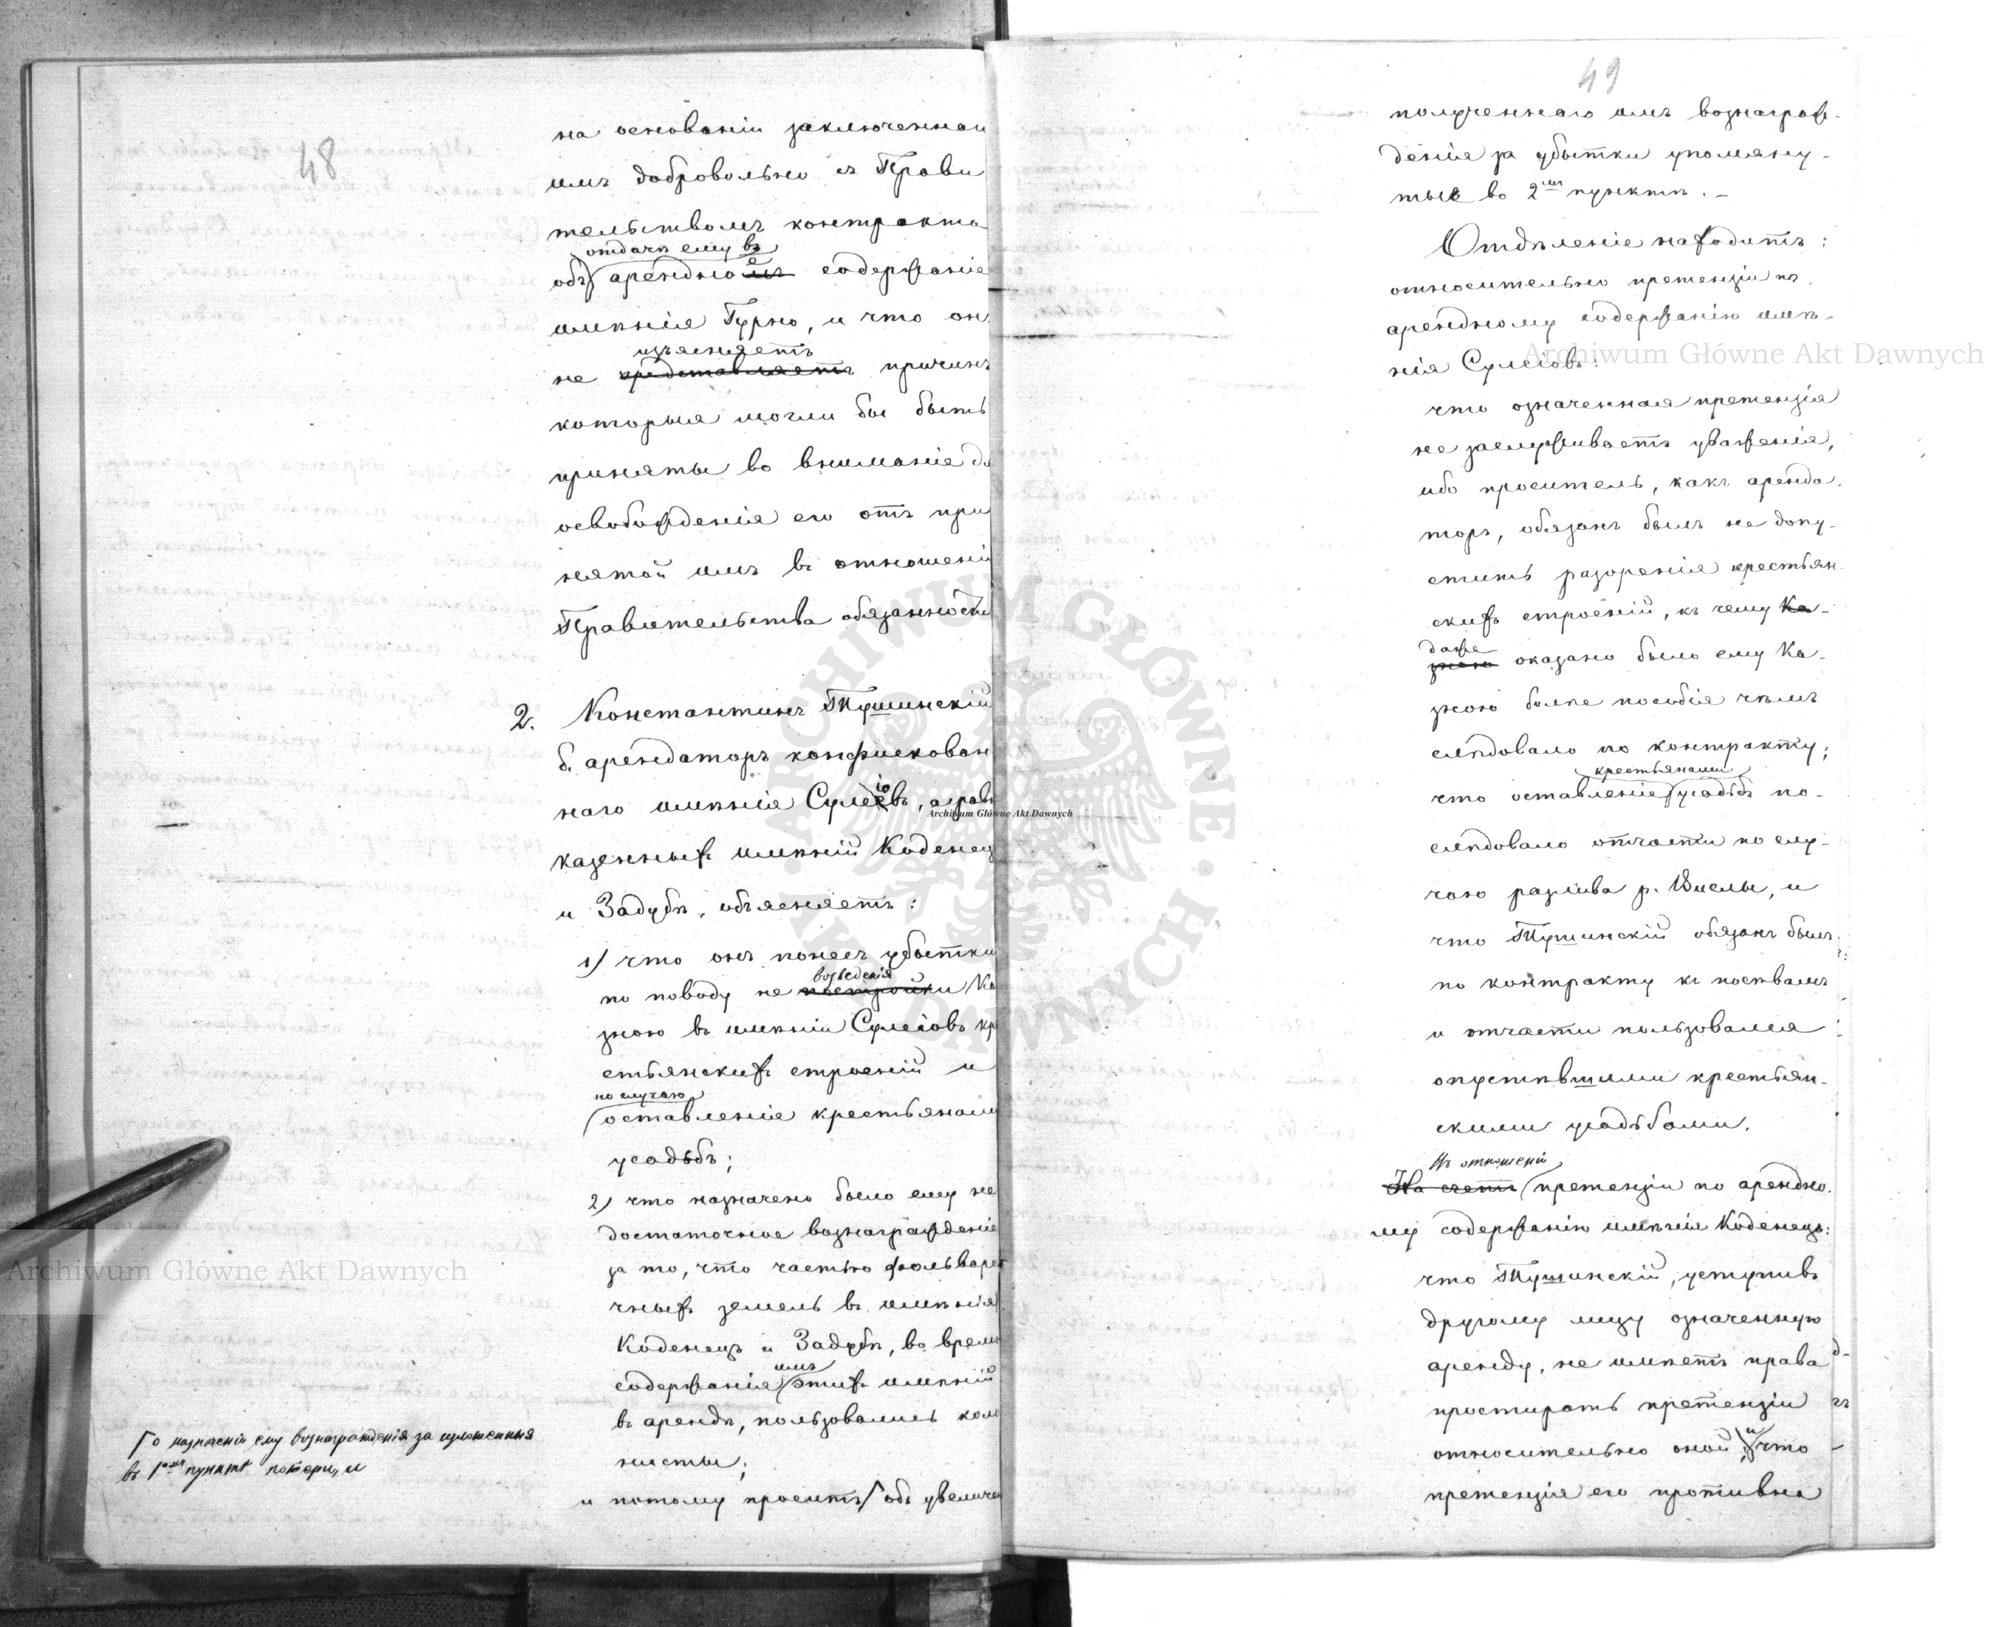 48
на основаніи заключеннаго
имъ добровольно съ Прави
тельствомъ контракта
отдачѣ ему въ
объ арендномъ е содержаніе
имѣнія Гурно, и что онъ
изъясняетъ
не представляетъ причинъ
которыя могли бы быть
приняты во вниманіе дл
освобожденія его отъ при
нятой имъ въ отношеніи
Правительства обязанности
2. Константинъ Тушинскій
б. арендаторъ конфискован
наго имѣнія Сулеіовъ, а равн
казенныхъ имѣній Коденец
и Задубѣ, объясняетъ:
1) что онъ понесъ убытки
возведенія
по поводу не постройки Ка
зною въ имѣніи Сулеіовъ кре
стьянскихъ строеній и
по случаю
оставленія крестьянами
усадьбъ;
2) что назначено было ему не
достаточное вознагражденіе
за то, что частью фольвароч
чныхъ земель въ имѣнія
Коденецъ и Задубѣ, во время
имъ
содержанія этихъ имѣній
въ арендѣ, пользовались коло
нисты;
и потому проситъ объ увеличен
о назначеніи ему вознагражденія за изложенныя
въ 1омъ пунктѣ потери, и
49
полученнаго имъ вознаграж-
денія за убытки упомяну-
тые во 2мъ пунктѣ. –
Отдѣленіе находитъ:
относительно претензіи по
арендному содержанію имѣ-
нія Сулеіовъ:
что означенная претензія
не заслуживаетъ уваженія,
ибо проситель, какъ аренда-
торъ, обязанъ былъ не допу-
стить разоренія крестьян-
скихъ строеній, къ чему Ка-
даже
зною оказано было ему Ка-
зною болѣе пособія чѣмъ
слѣдовало по контракту;
крестьянами
что оставленіе усадьбъ по-
слѣдовало отчасти по слу-
чаю разлива р. Вислы, и
что Тушинскій обязанъ былъ
по контракту къ поставамъ
и отчасти пользовался
опустѣвшими крестьян-
скими усадьбами.
Въ отношеніи
На счетъ претензіи по арендно-
му содержанію имѣнія Коденецъ:
что Тушинскій, уступивъ
другому лицу означенную
аренду, не имѣетъ права
простирать претензіи
относительно оной, и что
претензія его противна
Archiwum Główne Akt Dawnych
Archiwum Główne Akt Dawnych
Archiwum Główne Akt Dawnych
ARCHIWUM GŁÓWNE AKT DAWNYCH